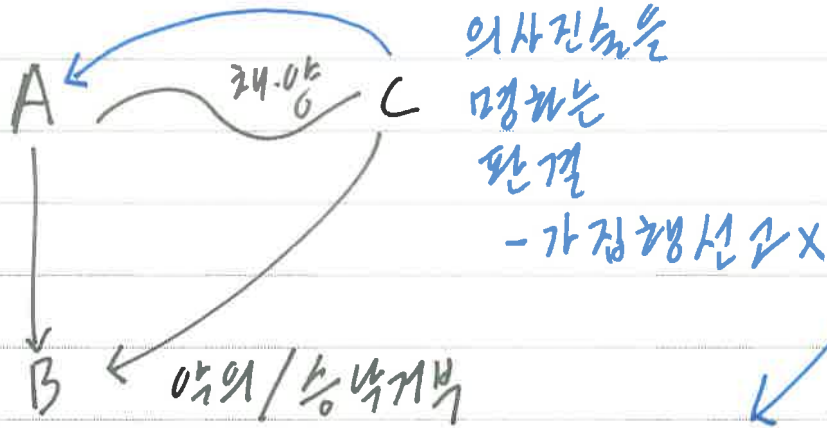 A
채·양
C
의사진술을
명하는
판결
- 가집행선고 X
B
악의/승낙거부